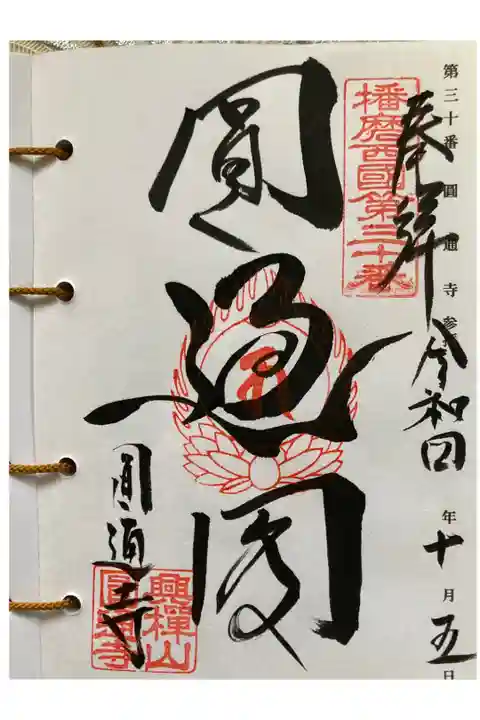 第三十番圓通寺参
年十月五日
奉拝
令和四
播磨西國第三十番
圓通閣
圓通寺
興禅山
圓通寺